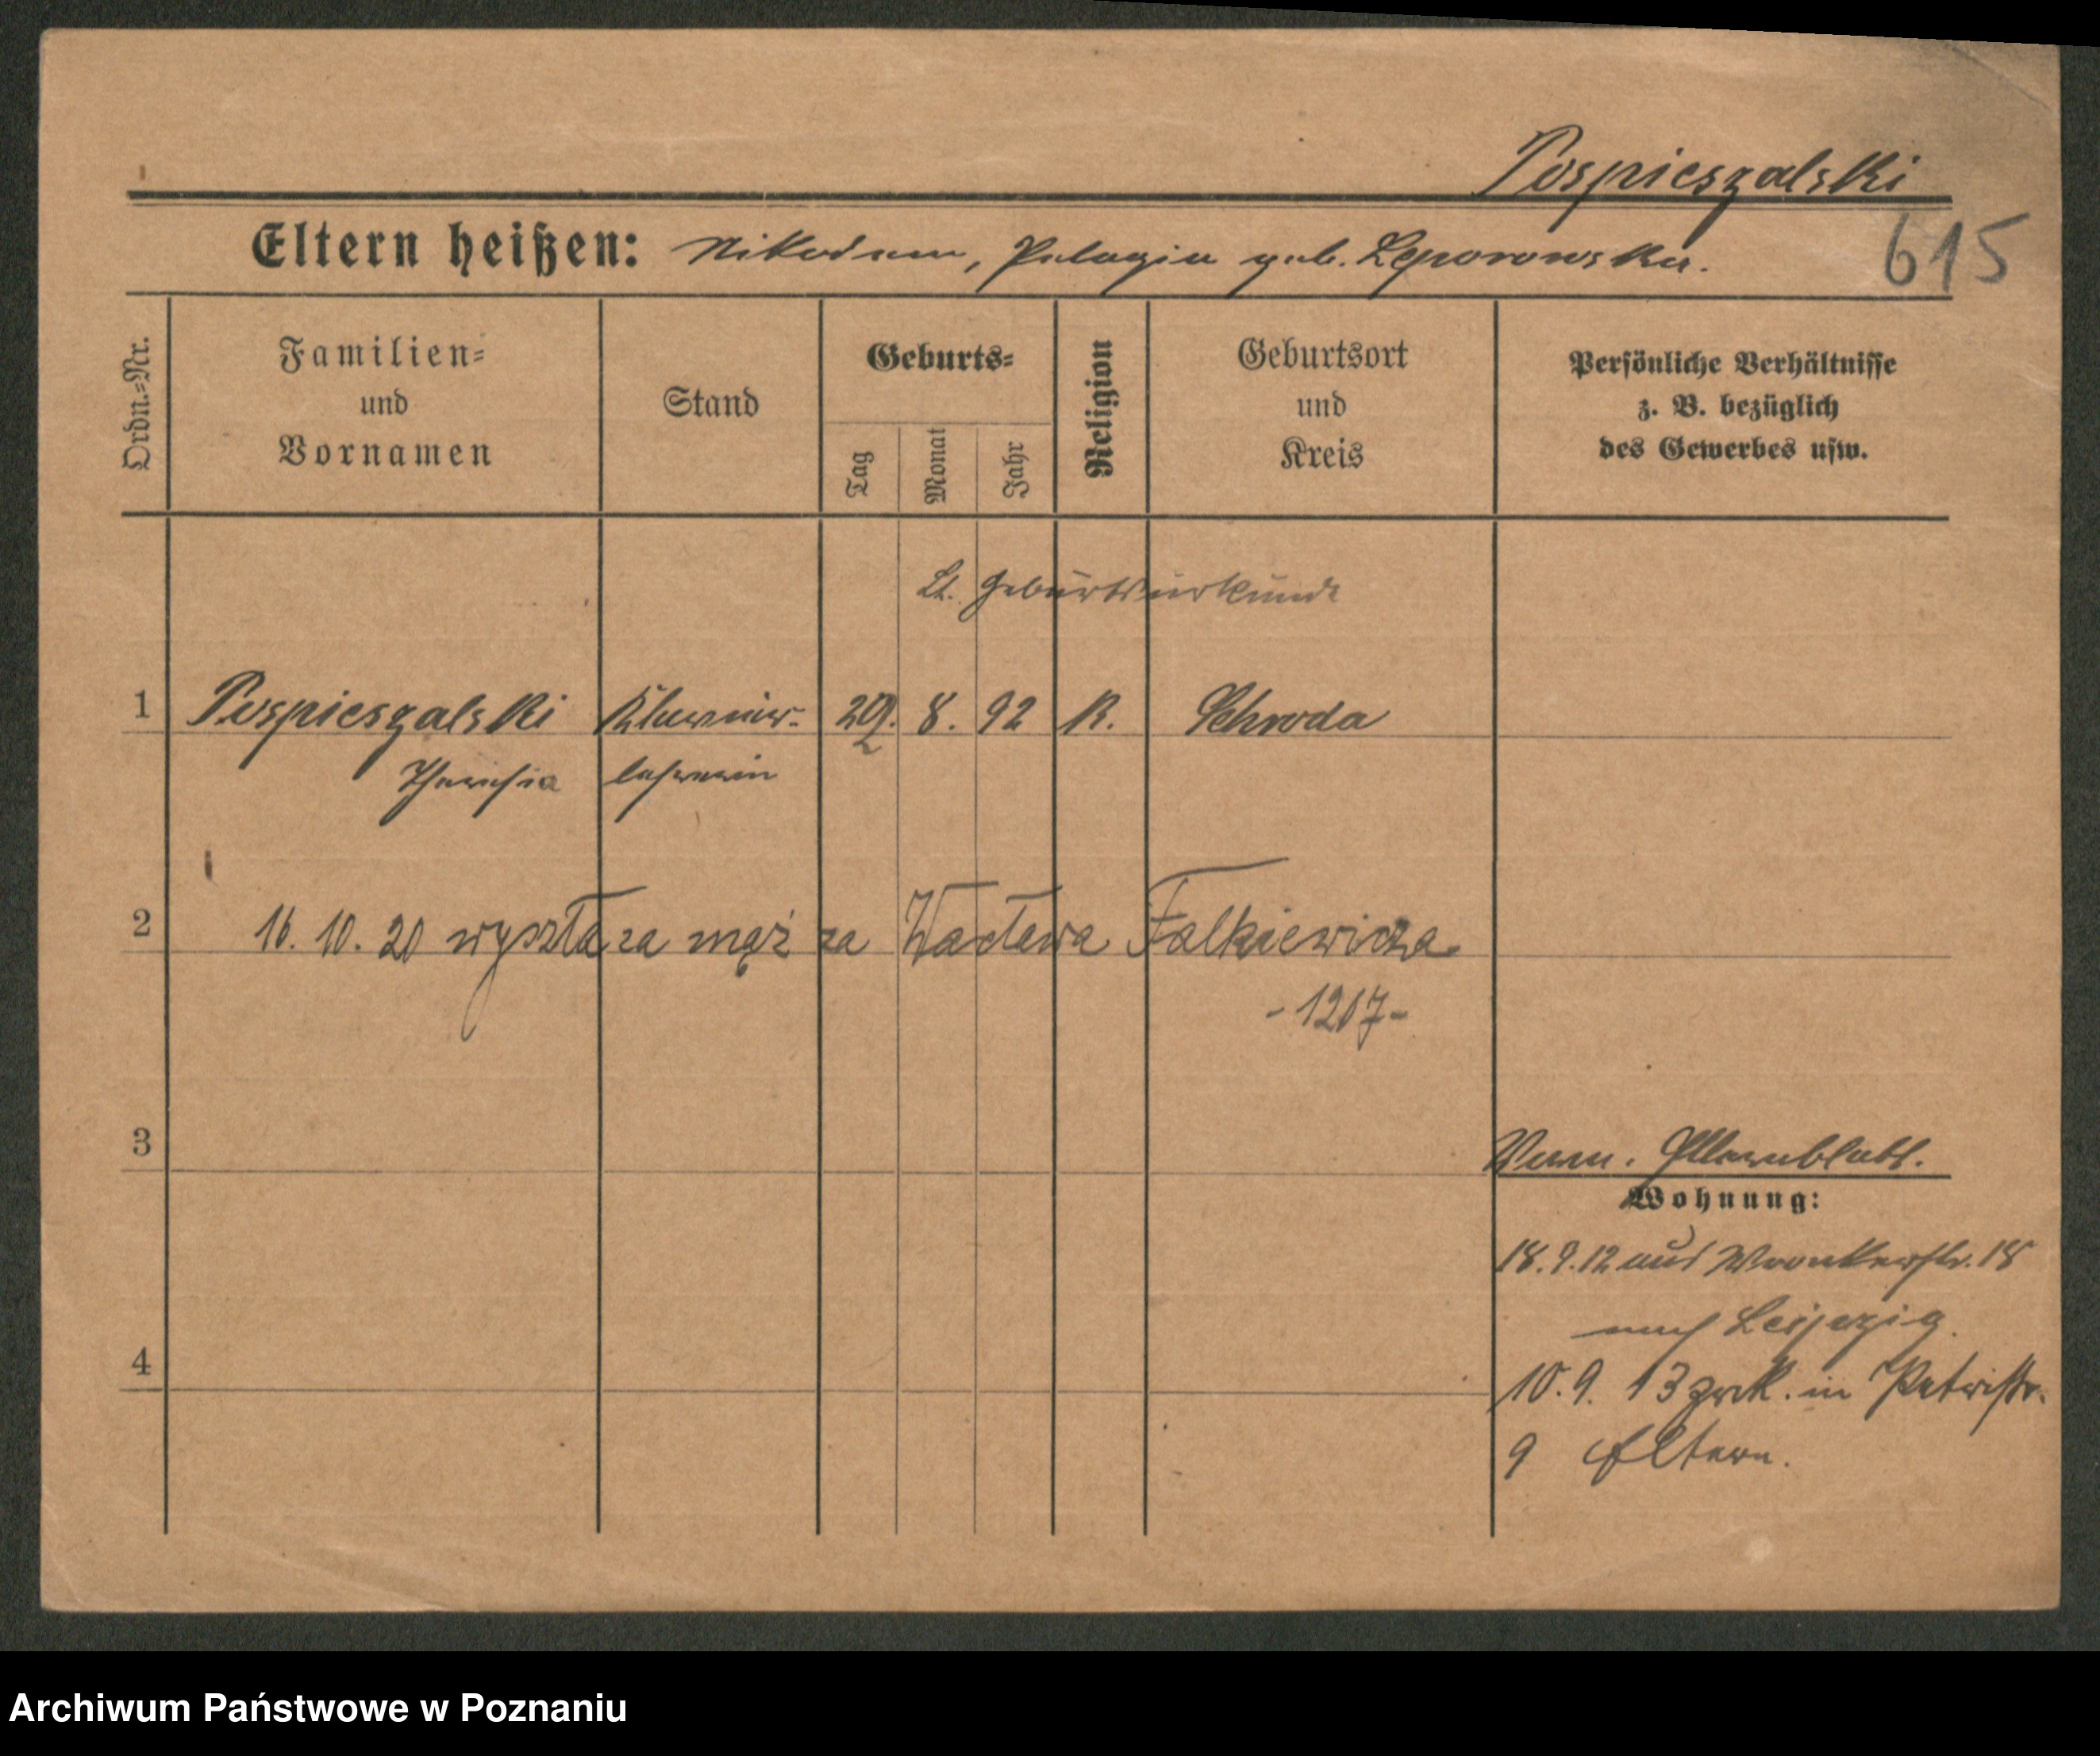 Pospieszalski
Eltern heißen: Nikodem, Pelagia geb. Leporowska.
615
Ordn.-Nr.
Familien-
und
Vornamen
Stand
Geburts-
Tag
Monat
Jahr
Religion
Geburtsort
und
Kreis
Persönliche Verhältnisse
z. B. bezüglich
des Gewerbes usw.
Lt. Geburtsurkunde
1 Pospieszalski Klavier- 29. 8. 92 K. Schroda
Theresia lehrerin
2 16. 10. 20 wyszła za mąż za Wacława Falkiewicza
-1217-
3
Verm. Elternblatt.
Wohnung:
18. 9. 12 aus Wronkerstr. 18
nach Leipzig.
4
10. 9. 13 zurk. in Petristr.
9 Eltern.
Archiwum Państwowe w Poznaniu